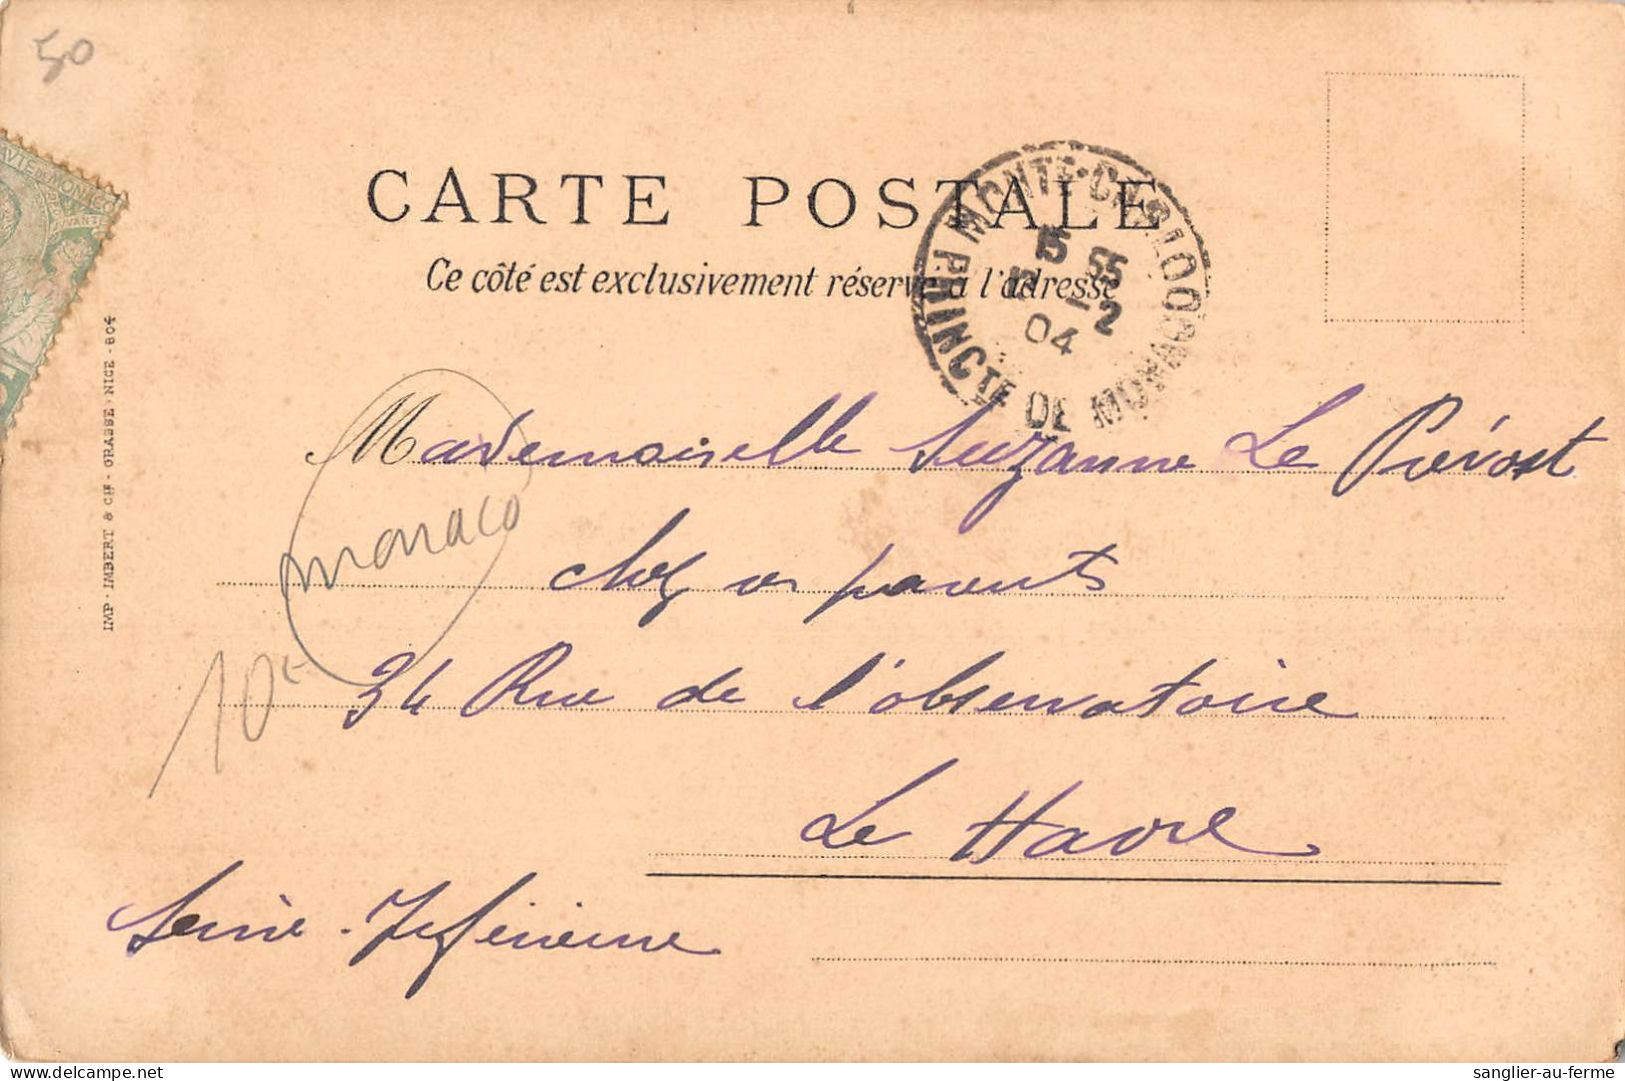 50
CARTE POSTALE
Ce côté est exclusivement réservé à l'adresse
MONTE-CARLO
15 55
-2
04
PRINCTE DE MONACO
Mademoiselle Suzanne Le Prévost
monaco
chez ses parents
10€
34 Rue de l'observatoire
Le Havre
Seine-Inférieure
IMP. IMBERT & Cie - GRASSE - NICE - 804
sanglier-au-ferme